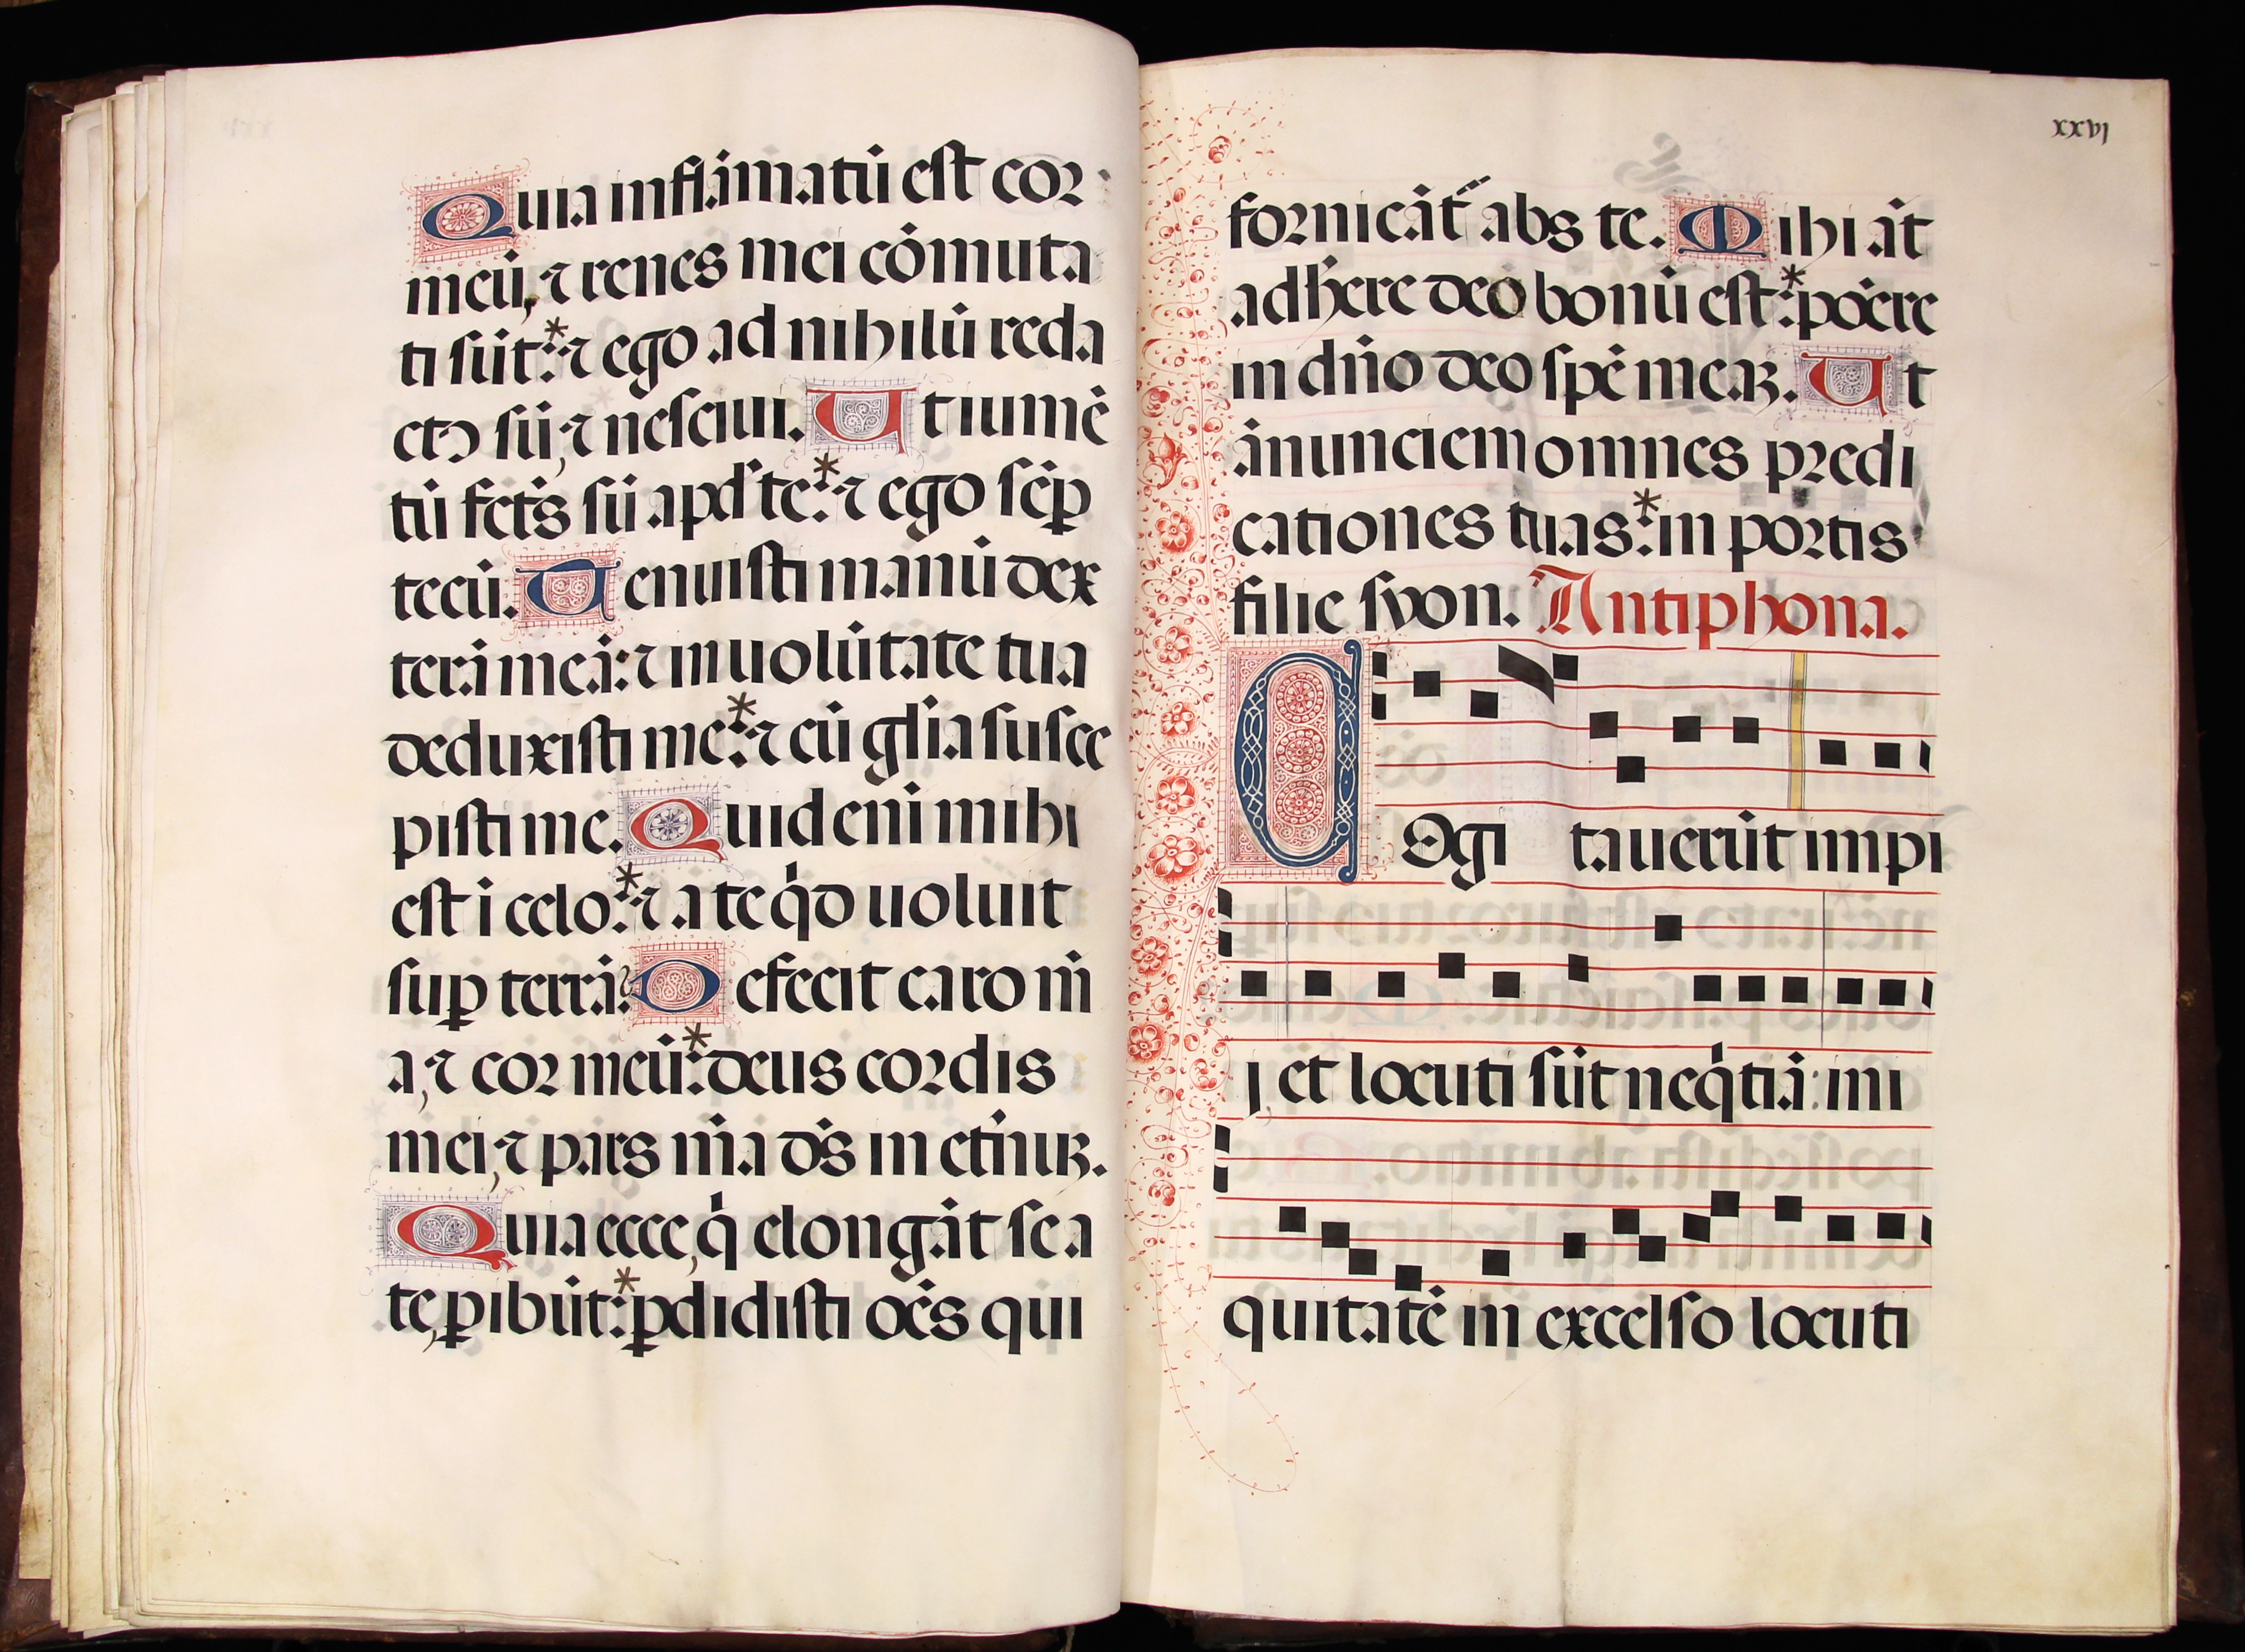 Quia inflāmatū est cor
meū, ⁊ renes mei cōmuta
ti sūt:* ⁊ ego ad nihilū reda
ctꝰ sū, ⁊ nesciui. Ut iumē
tū fct̄s sū apd̓ te:* ⁊ ego sēp̄
tecū. Tenuisti manū dex
terā meā: ⁊ in uolūtate tua
deduxisti me:* ⁊ cū gl̄ia susce
pisti me. Quid enī mihi
est ī celo:* ⁊ a te qd̓ uoluit
suꝑ terrā? Defecit caro m̄
a, ⁊ cor meū:* deus cordis
mei, ⁊ pars m̄a ds̄ in et̄nuꝝ.
Quia ecce, q̄ elongāt se a
te, ꝑibūt:* ꝑdidisti oēs qui
xxvj
fornicāt̄ abs te. Mihi āt
adh̄ere deo bonū est:* pōere
in dn̄o deo spē meaꝝ. Ut
ānunciem omnes predi
cationes tuas:* in portis
filie syon. Antiphona.
COgi tauerūt impi
j, et locuti sūt neq̄tiā: ini
quitatē in excelso locuti